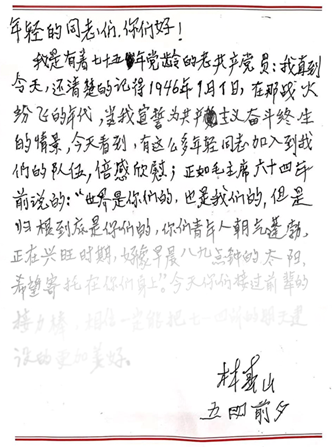 年轻的同志们，你们好！
我是有着七十五年党龄的老共产党员；我直到
今天，还清楚的记得1946年9月1日，在那战火
纷飞的年代，当我宣誓为共产主义奋斗终生
的情景，今天看到，有这么多年轻同志加入到我
们的队伍，倍感欣慰；正如毛主席六十四年
前说的：“世界是你们的，也是我们的，但是
归根到底是你们的，你们青年人朝气蓬勃，
正在兴旺时期，好像早晨八九点钟的太阳，
希望寄托在你们身上”。今天你们接过前辈的
接力棒，相信一定能把七一四所的明天建
设的更加美好。
林春山
五四前夕